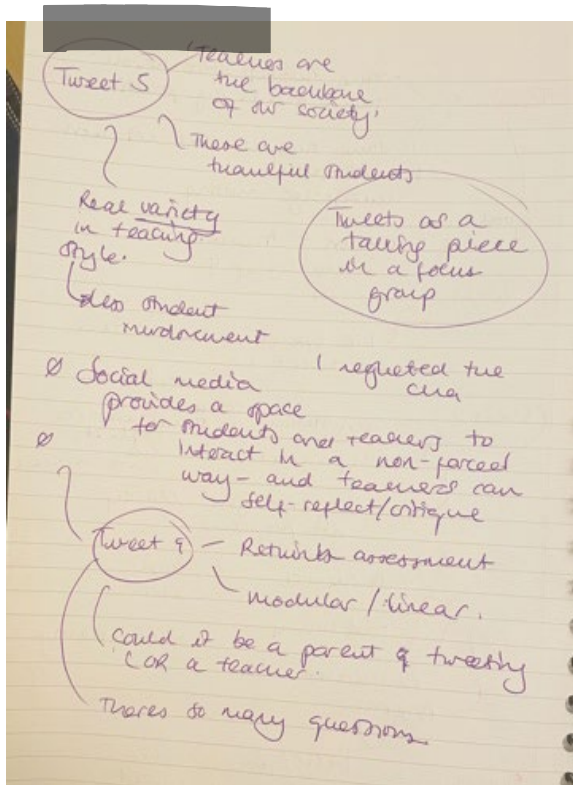 Tweet 5
'Teachers are
the backbone
of our society'
There are
thankful students
Real variety
in teaching
style.
less student
Tweets as a
talking piece
in a focus
group
I regretted the
Ø Social media
provides a space
for students and teachers to
interact in a non-forced
way - and teachers can
self-reflect/critique
Ø
Tweet 9
- Rethink assessment
modular / linear.
Could it be a parent & tweeting
(OR a teacher.
Theres so many questions.